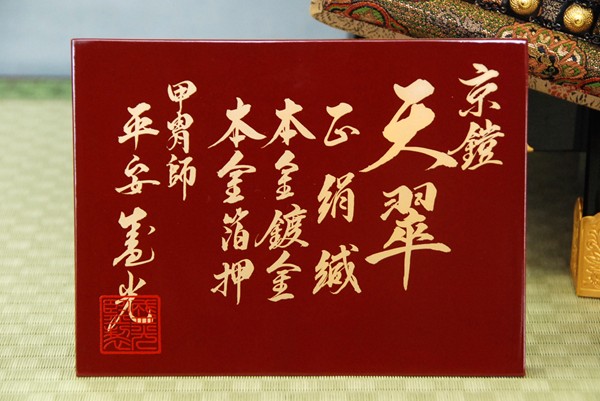 京鎧
天翠
正絹縅
本金鍍金
本金箔押
甲冑師
平安 光